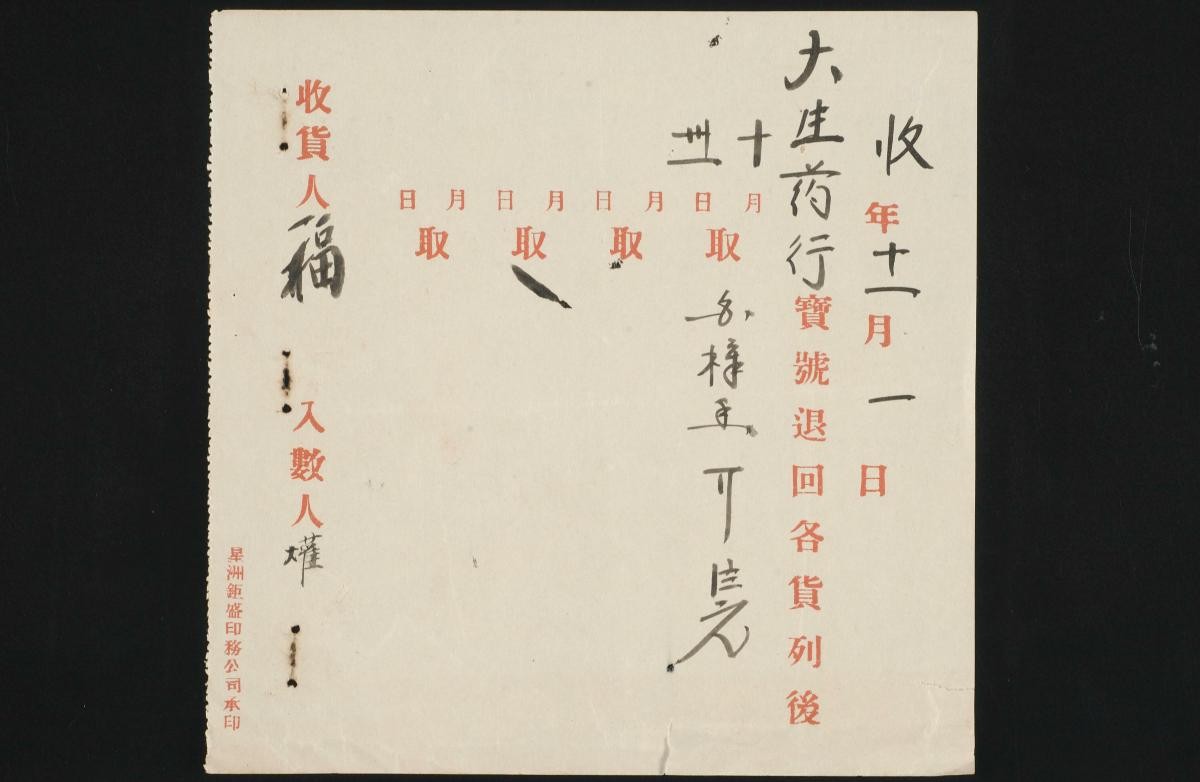 收 年十一月一日
大生药行寶號退回各貨列後
十月卅一日取
月 日 取
月 日 取
月 日 取
收貨人福 入數人
星洲鉅盛印務公司承印